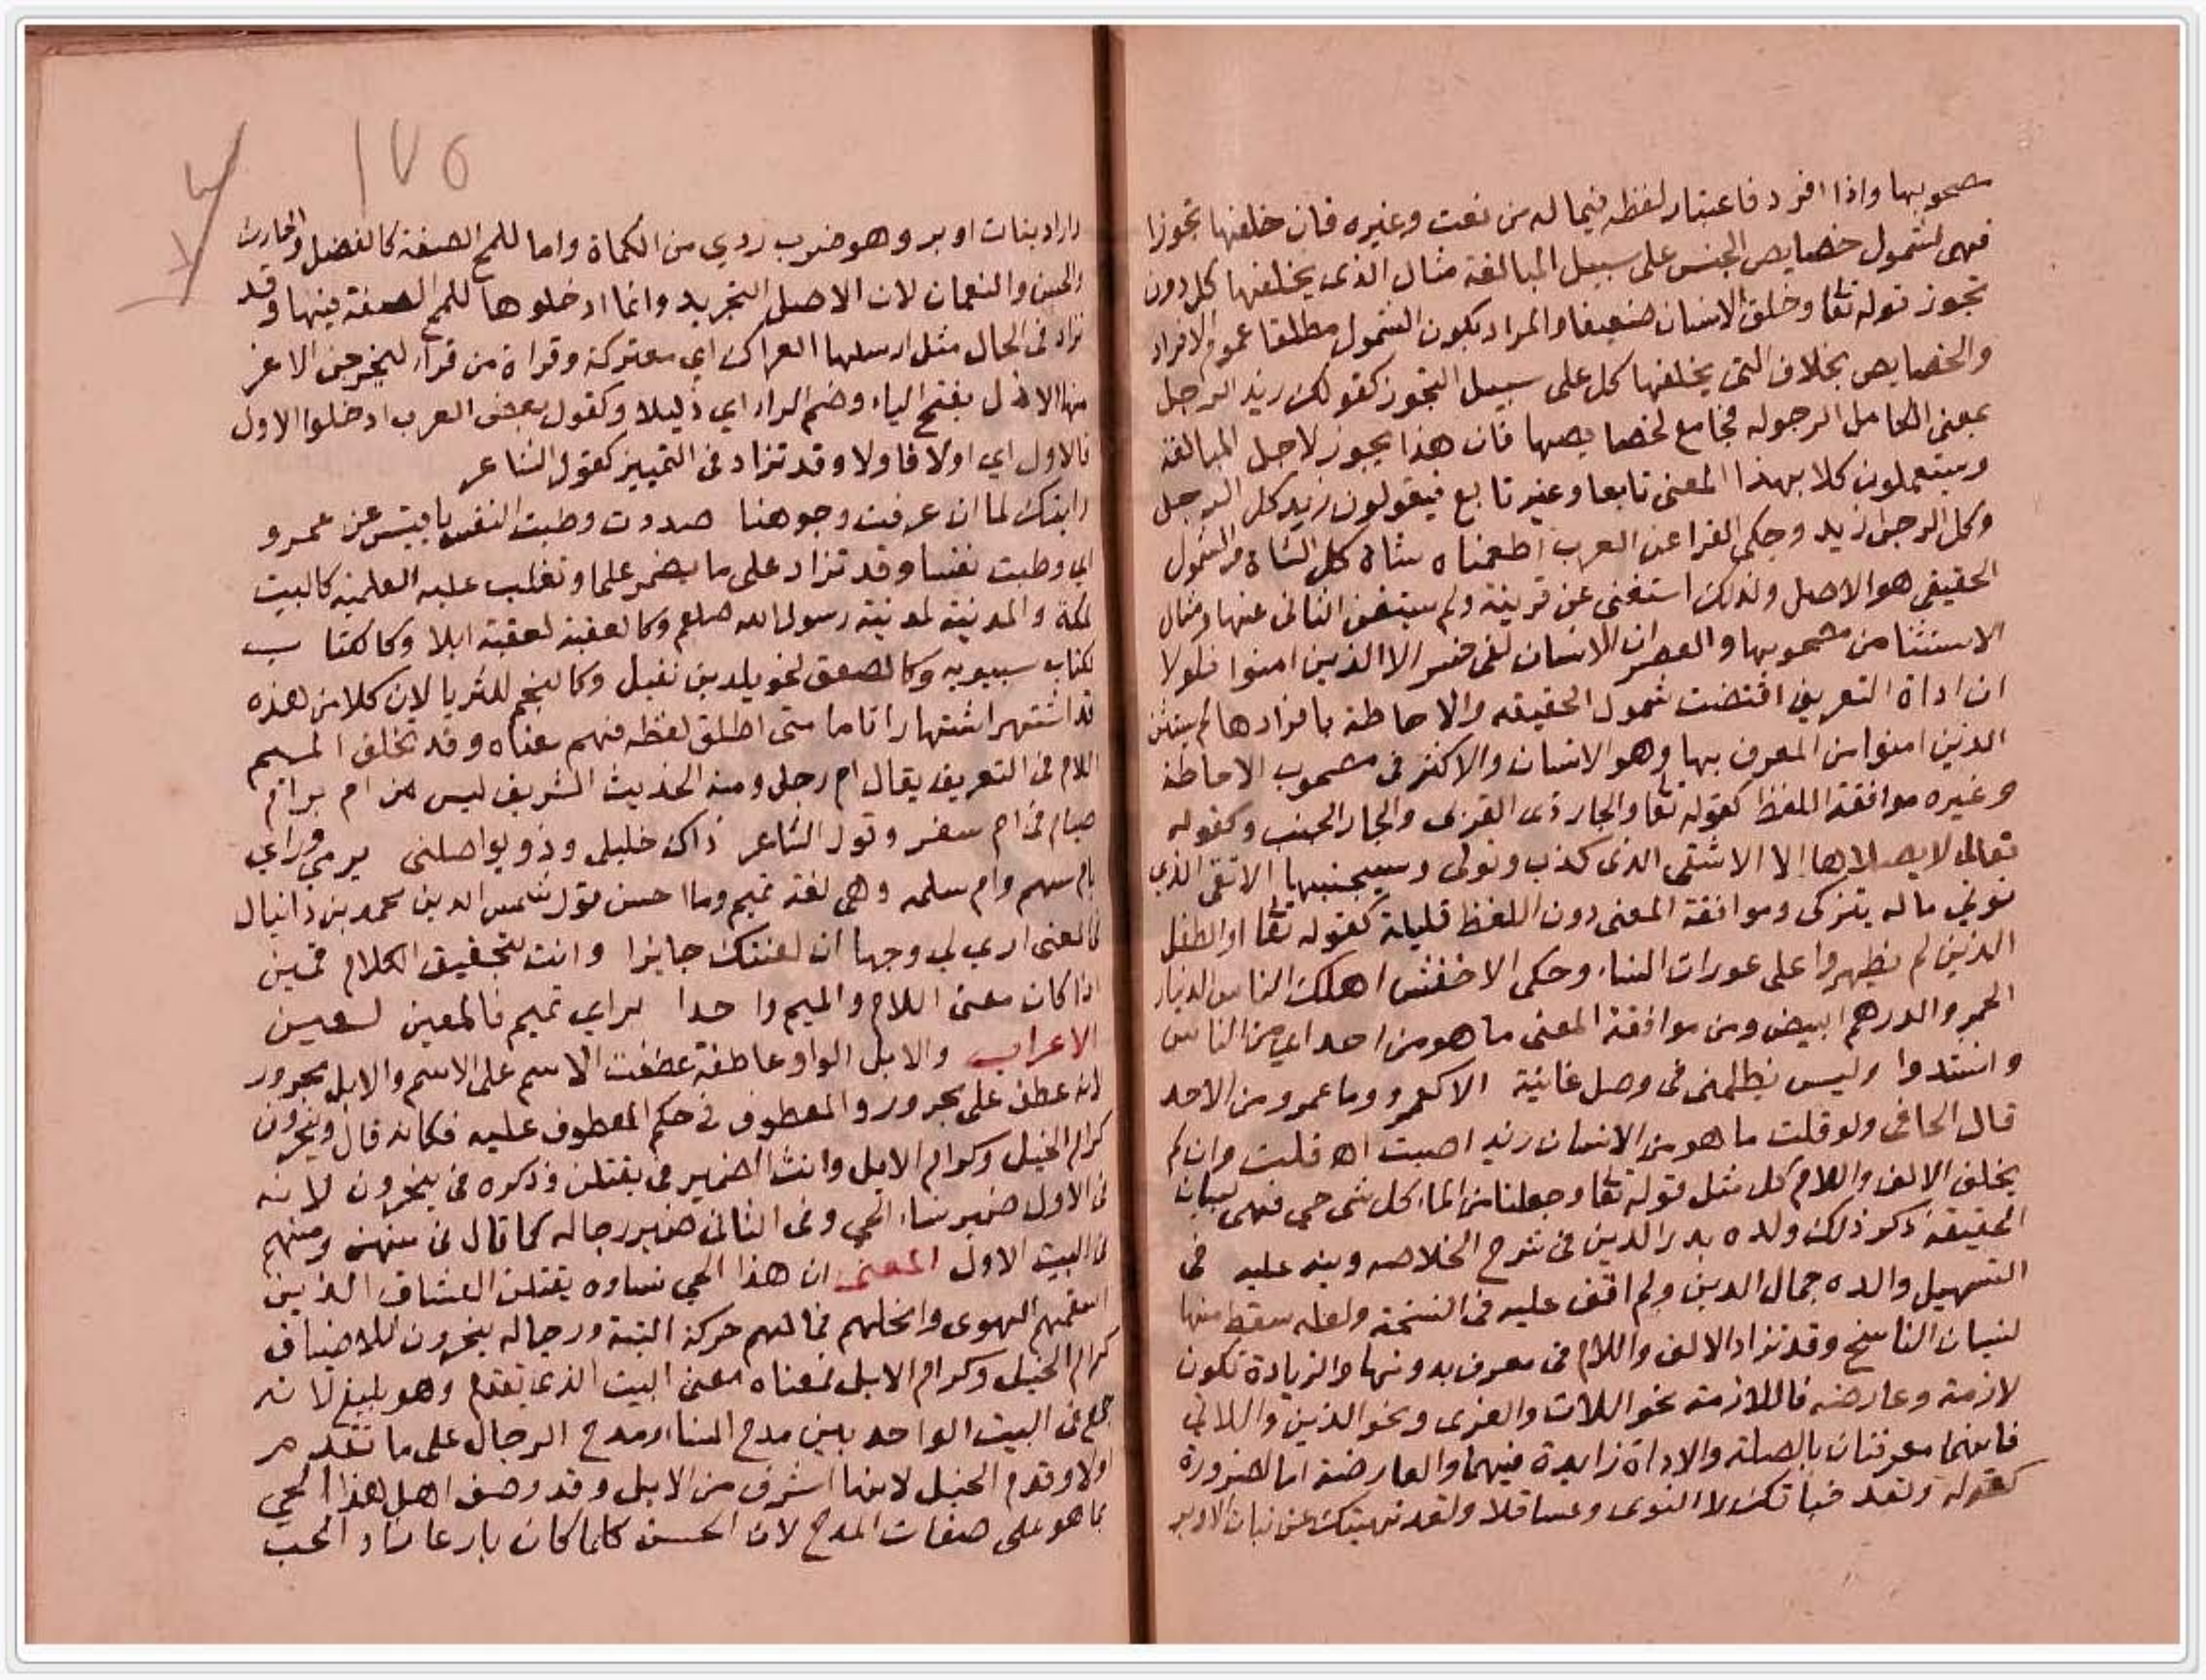 مصحوبها واذا افرد فاعتبار لفظه فيما له من نعت وغيره فان خلفها تجوزا
فهى لشمول خصايص الجنس على سبيل المبالغة مثال الذى يخلفها كل دون
تجوز قوله تعا وخلق الانسان ضعيفا والمراد بكون الشمول مطلقا عموم الافراد
والخصايص بخلاف التى يخلفها كل على سبيل التجوز كقولك زيد الرجل
بمعنى الكامل الرجوله فجامع لخصايصها فان هذا يجوز لاجل المبالغة
ويستعملون كلا بهذا المعنى تابعا وغير تابع فيقولون زيد كل الرجل
وكل الرجل زيد وحكى الفرا عن العرب اطعمناه شاة كل الشاة والشمول
الحقيقى هو الاصل ولذلك استغنى عن قرينة ولم يستغن الثانى عنها ومثال
الاستثنا من مصحوبها والعصر ان الانسان لفى خسر الا الذين امنوا فلولا
ان اداة التعريف اقتضت شمول الحقيقه والاحاطة بافرادها لم يستثن
الذين امنوا من المعرف بها وهو الانسان والاكثر فى مصحوب الاحاطة
وغيره موافقة اللفظ كقوله تعا والجار ذى القربى والجار الجنب وكقوله
تعالى لا يصلاها الا الاشقى الذى كذب وتولى وسيجنبها الاتقى الذى
يوتي ماله يتزكى وموافقة المعنى دون اللفظ قليلة كقوله تعا او الطفل
الذين لم يظهروا على عورات النساء وحكى الاخفش اهلك الناس الدينار
الحمر والدرهم البيض ومن موافقة المعنى ما هو من احد اي من الناس
وانشدوا وليس يظلمنى فى وصل غانية الا كعمرو وما عمرو من الاحد
قال الحافى ولو قلت ما هو من الانسان زيد اصبت اه قلت وان لم
يخلف الالف واللام كل مثل قوله تعا وجعلنا من الماء كل شى حي فهى لبيان
الحقيقة ذكر ذلك ولده بدر الدين فى شرح الخلاصه وبنه عليه فى
التسهيل والده جمال الدين ولم اقف عليه فى النسخة ولعله سقط منها
لنسيان الناسخ وقد تزاد الالف واللام فى معرف بدونها والزيادة تكون
لازمة وعارضه فاللازمة نحو اللات والعزى ونحو الذين واللاتي
فانهما معرفتان بالصلة والاداة زايدة فيهما والعارضة اما لضرورة
كقوله ولقد جنيتك اكموا وعساقلا ولقد نهيتك عن بنات الاوبر
١٧٥
اراد بنات اوبر وهو ضرب ردي من الكماة واما للمح الصفة كالفضل والحارث
والحسن والنعمان لان الاصل التجريد وانما ادخلوها للمح الصفة فيها وقد
تزاد فى الحال مثل ارسلها العراك اي معتركة وقراة من قراء ليخرجن الاعز
منها الاذل بفتح الياء وضم الراء اي ذليلا وكقول بعض العرب ادخلوا الاول
فالاول اي اولا فاولا وقد تزاد فى التمييز كقول الشاعر
رايتك لما ان عرفت وجوهنا صددت وطبت النفس يا قيس عن عمرو
اي وطبت نفسا وقد تزاد على ما يضمر علما وتغلب عليه العلمية كالبيت
لمكة والمدينة لمدينة رسول الله صلعم وكالعقبة لعقبة ايلا وكالكتاب
لكتاب سيبويه وكالصعق لخويلد بن نفيل وكالنجم للثريا لان كلا من هذه
قد اشتهر اشتهارا تاما متى اطلق لفظه فهم معناه وقد تخلف الميم
اللام فى التعريف يقال ام رجل ومنه الحديث الشريف ليس من ام برام
صيام فى ام سفر وقول الشاعر ذاك خليلى وذو يواصلنى يرمي وراي
بام سهم وام سلمه وهى لغة تميم وما احسن قول شمس الدين محمد بن دانيال
فالمعنى ارى لي وجها ان لعنتك جايزا وانت لتحقيق الكلام قمين
اذا كان معنى اللام والميم واحدا براي تميم فالمعين لعين
الاعراب والابل الواو عاطفة عطفت الاسم على الاسم والابل مجرور
لانه عطف على مجرور والمعطوف فى حكم المعطوف عليه فكانه قال وينحرون
كرام الخيل وكرام الابل وانث الضمير فى يقتلن وذكره فى ينحرون لانه
فى الاول ضمير نساء الحي وفى الثانى ضمير رجاله كما قال فى منهن ومنهم
فى البيت الاول المعنى ان هذا الحي نساوه يقتلن العشاق الذين
اسقمهم الهوى وانحلهم فما لهم حركة البتة ورجاله ينحرون للاضياف
كرام الخيل وكرام الابل فمعناه معنى البيت الذى تقدم وهو بليغ لانه
جمع فى البيت الواحد بين مدح النساء ومدح الرجال على ما تقدم
اولا وقدم الخيل لانها اشرف من الابل وقد وصف اهل هذا الحي
بما هو على صفات المدح لان الحسن كلما كان بارعا زاد الحب